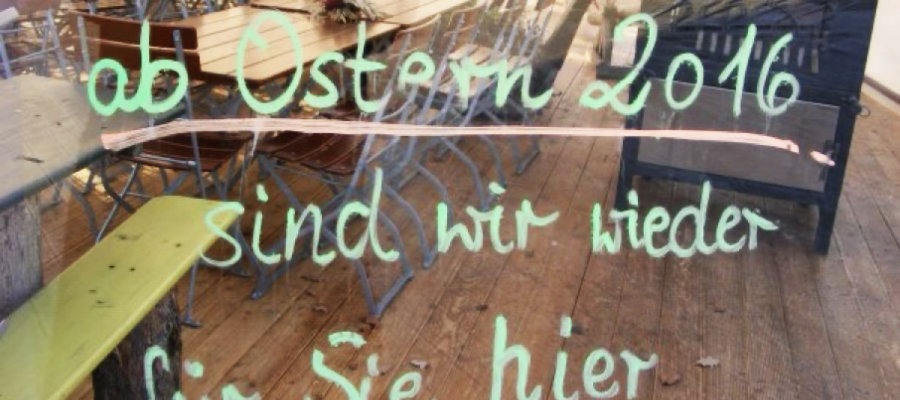 ab Ostern 2016
sind wir wieder
für Sie hier